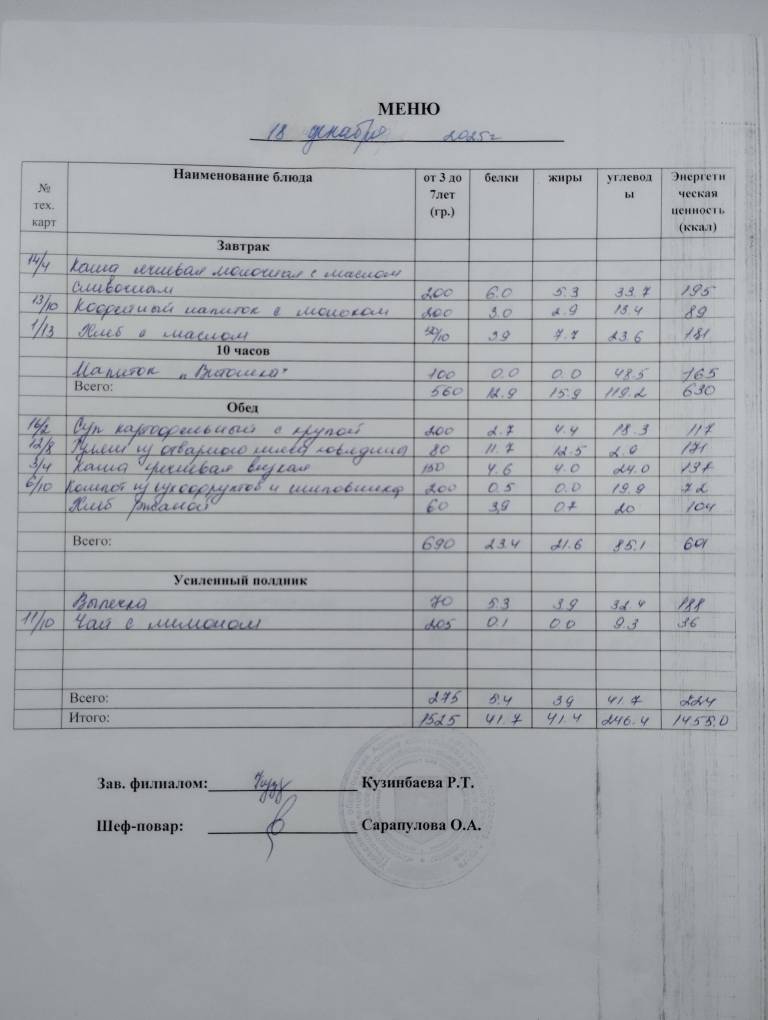 МЕНЮ
18 декабря 2025г
№ тех. карт Наименование блюда от 3 до 7лет (гр.) белки жиры углеводы Энергетическая ценность (ккал)
Завтрак
14/4 Каша ячневая молочная с маслом
сливочным 200 6.0 5.3 33.7 195
13/10 Кофейный напиток с молоком 200 3.0 2.9 13.4 89
1/13 Хлеб с маслом 50/10 3.9 7.7 23.6 181
10 часов
Напиток "Витошка" 100 0.0 0.0 48.5 165
Всего: 560 12.9 15.9 119.2 630
Обед
16/2 Суп картофельный с крупой 200 2.7 4.4 18.3 117
12/8 Гуляш из отварного мяса говядины 80 11.7 12.5 2.9 171
3/4 Каша гречневая вязкая 150 4.6 4.0 24.0 137
6/10 Компот из сухофруктов и шиповника 200 0.5 0.0 19.9 72
Хлеб ржаной 60 3,9 07 20 104
Всего: 690 23.4 21.6 85.1 601
Усиленный полдник
Выпечка 70 5.3 3.9 32.4 188
11/10 Чай с лимоном 205 0.1 0.0 9.3 36
Всего: 275 5.4 39 41.7 224
Итого: 1525 41.7 41.4 246.4 1455.0
Зав. филиалом: Кузинбаева Р.Т.
Шеф-повар: Сарапулова О.А.